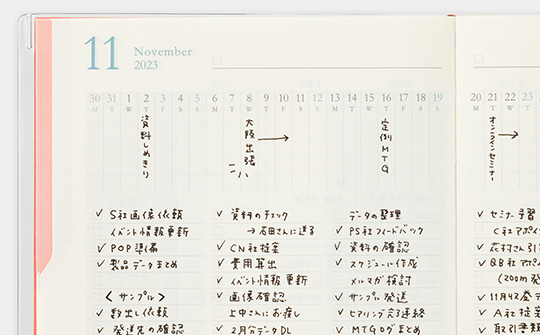 11 November
2023
30 31 1 2 3 4 5 6 7 8 9 10 11 12 13 14 15 16 17 18 19 20 21 22 23
M T W T F S S M T W T F S S M T W T F S S M T W T
資料しめきり
大阪出張
→
定例MTG
オンラインセミナー
→
✓ S社画像依頼
イベント情報更新
✓ POP準備
✓ 製品データまとめ
〈サンプル〉
✓ 割り出し依頼
✓ 発送先の確認
✓ 資料のチェック
→ 石田さんに送る
✓ CN社提案
✓ 費用算出
✓ イベント情報更新
✓ 画像確認
上中さんにお戻し
✓ 2月分データDL
データの整理
✓ PS社フィードバック
✓ 資料の確認
✓ スケジュール作成
メルマガ検討
✓ サンプル発送
✓ ヒアリング完了連絡
✓ MTGログまとめ
✓ セミナー予習
C社アポイ
✓ 花村さん引
✓ BB社アポイ
(200m発
✓ 11月4Z発デ
✓ A社提案
取引案数